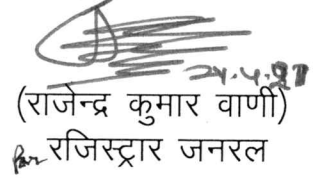 (राजेन्द्र कुमार वाणी)
For रजिस्ट्रार जनरल